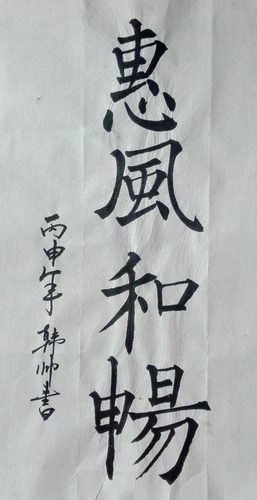 惠風和暢
丙申年韩帅書